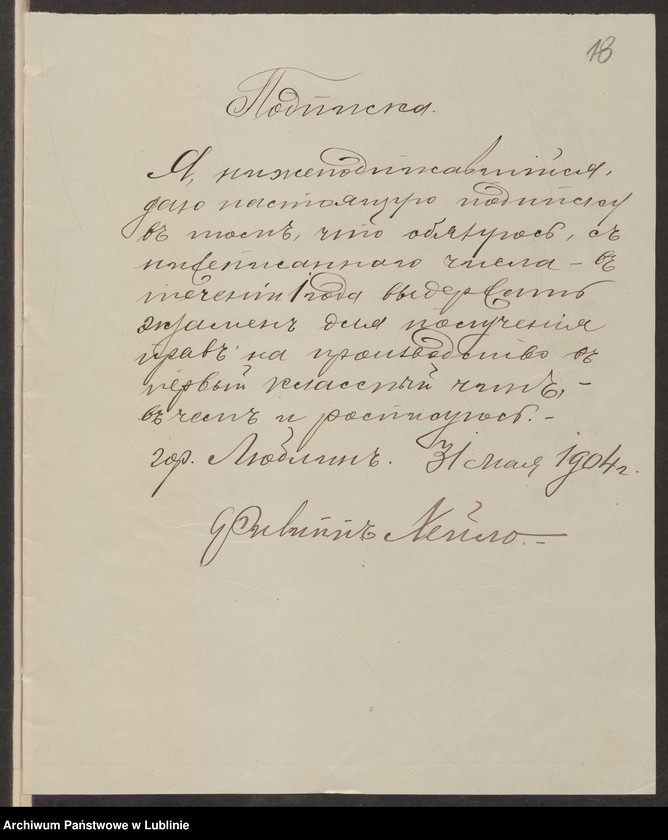 18
Подписка.
Я, нижеподписавшійся,
даю настоящую подписку
въ томъ, что обязуюсь, съ
нижеписаннаго числа – въ
теченіи 1 года выдержать
экзаменъ для полученія
правъ на производство въ
первый классный чинъ, –
въ чемъ и росписуюсь. –
гор. Люблинъ. 31 мая 1904 г.
Archiwum Państwowe w Lublinie